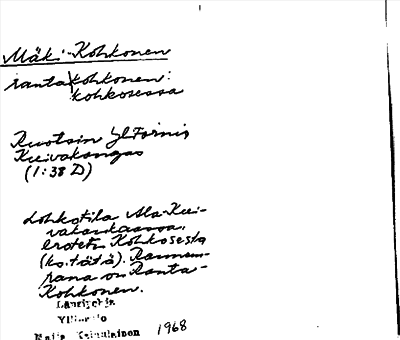 Mäki-Kohkonen
ranta/kohkonen:
kohkosessa
Ruotsin YlTornio
Kuivakangas
(1:38 D)
Lohkotila Ala-Kui-
vakankaassa,
erotettu Kohkosesta
(ks. tätä). Rannem-
pana on Ranta-
Kohkonen.
Ylitornio
Maija 1968